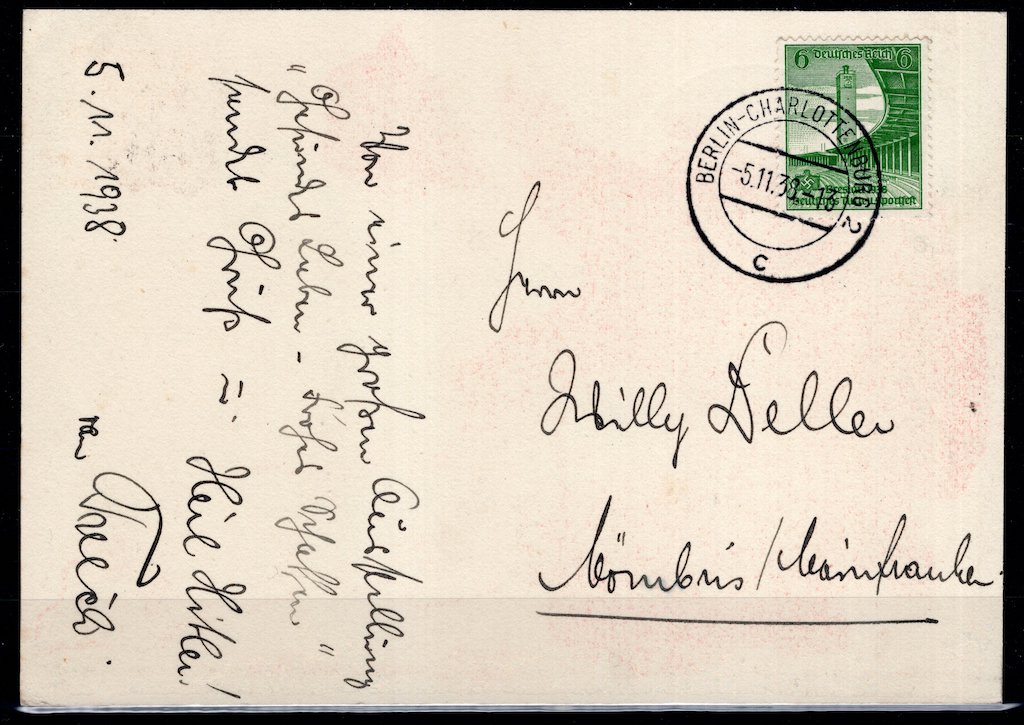 6 Deutsches Reich 6
Breslau 1938
Deutsches Turn- u. Sportfest
BERLIN-CHARLOTTENBURG 2
-5.11.38.-13
c
Von einer großen Ausstellung
"Gesundes Leben - Frohes Schaffen"
sendet Gruß =
Heil Hitler!
5.11.1938.
Herrn
Willy Deller
Mömbris / Mainfranken.